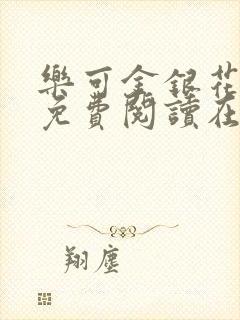 樂可金銀花
免費閱讀在
翔塵